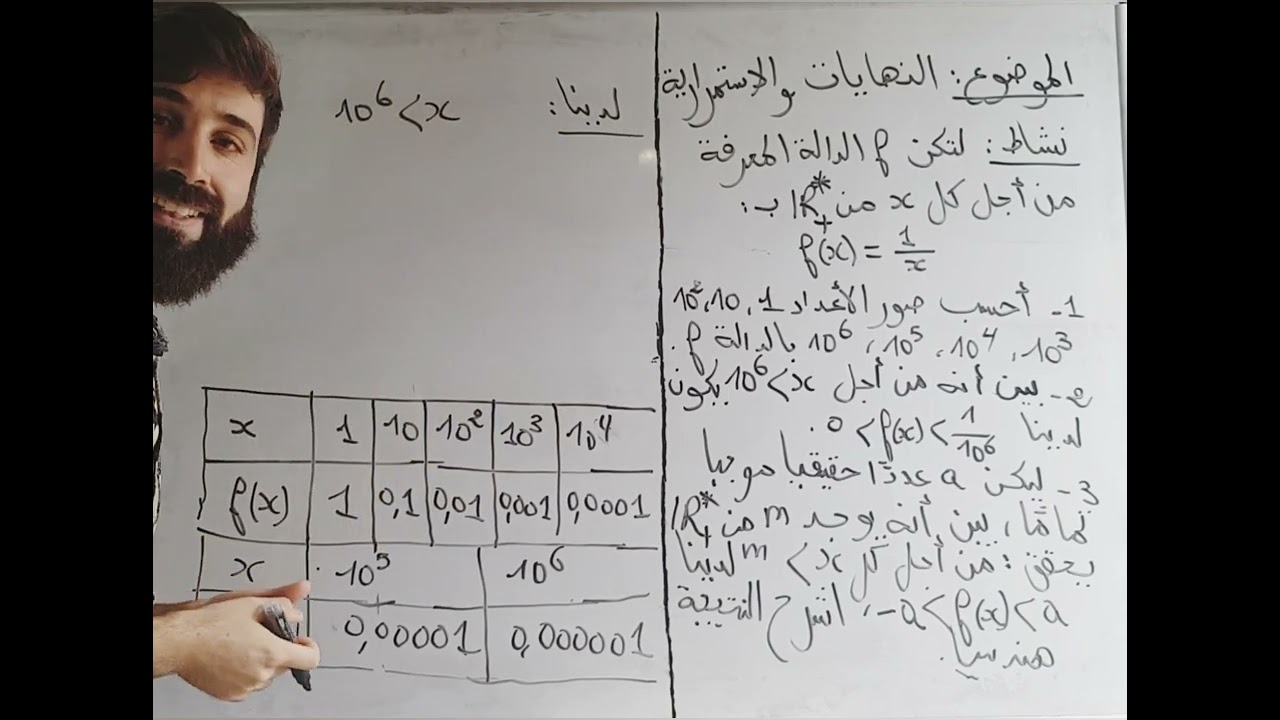 الموضوع: النهايات والإستمرارية
نشاط: لتكن f الدالة المعرفة
من أجل كل x من ℝ*₊ ب:
f(x) = 1/x
1- أحسب صور الأعداد 1، 10، 10²
10³، 10⁴، 10⁵، 10⁶ بالدالة f.
2- بين أنه من أجل 10⁶<x يكون
لدينا 0<f(x)<1/10⁶.
3- ليكن a عددًا حقيقيا موجبا
تمامًا، بين أنه يوجد m من ℝ*₊
يحقق: من أجل كل m<x لدينا
-a<f(x)<a، اشرح النتيجة
هندسيا.
لدينا: 10⁶<x
x 1 10 10² 10³ 10⁴
f(x) 1 0,1 0,01 0,001 0,0001
x 10⁵ 10⁶
0,00001 0,000001